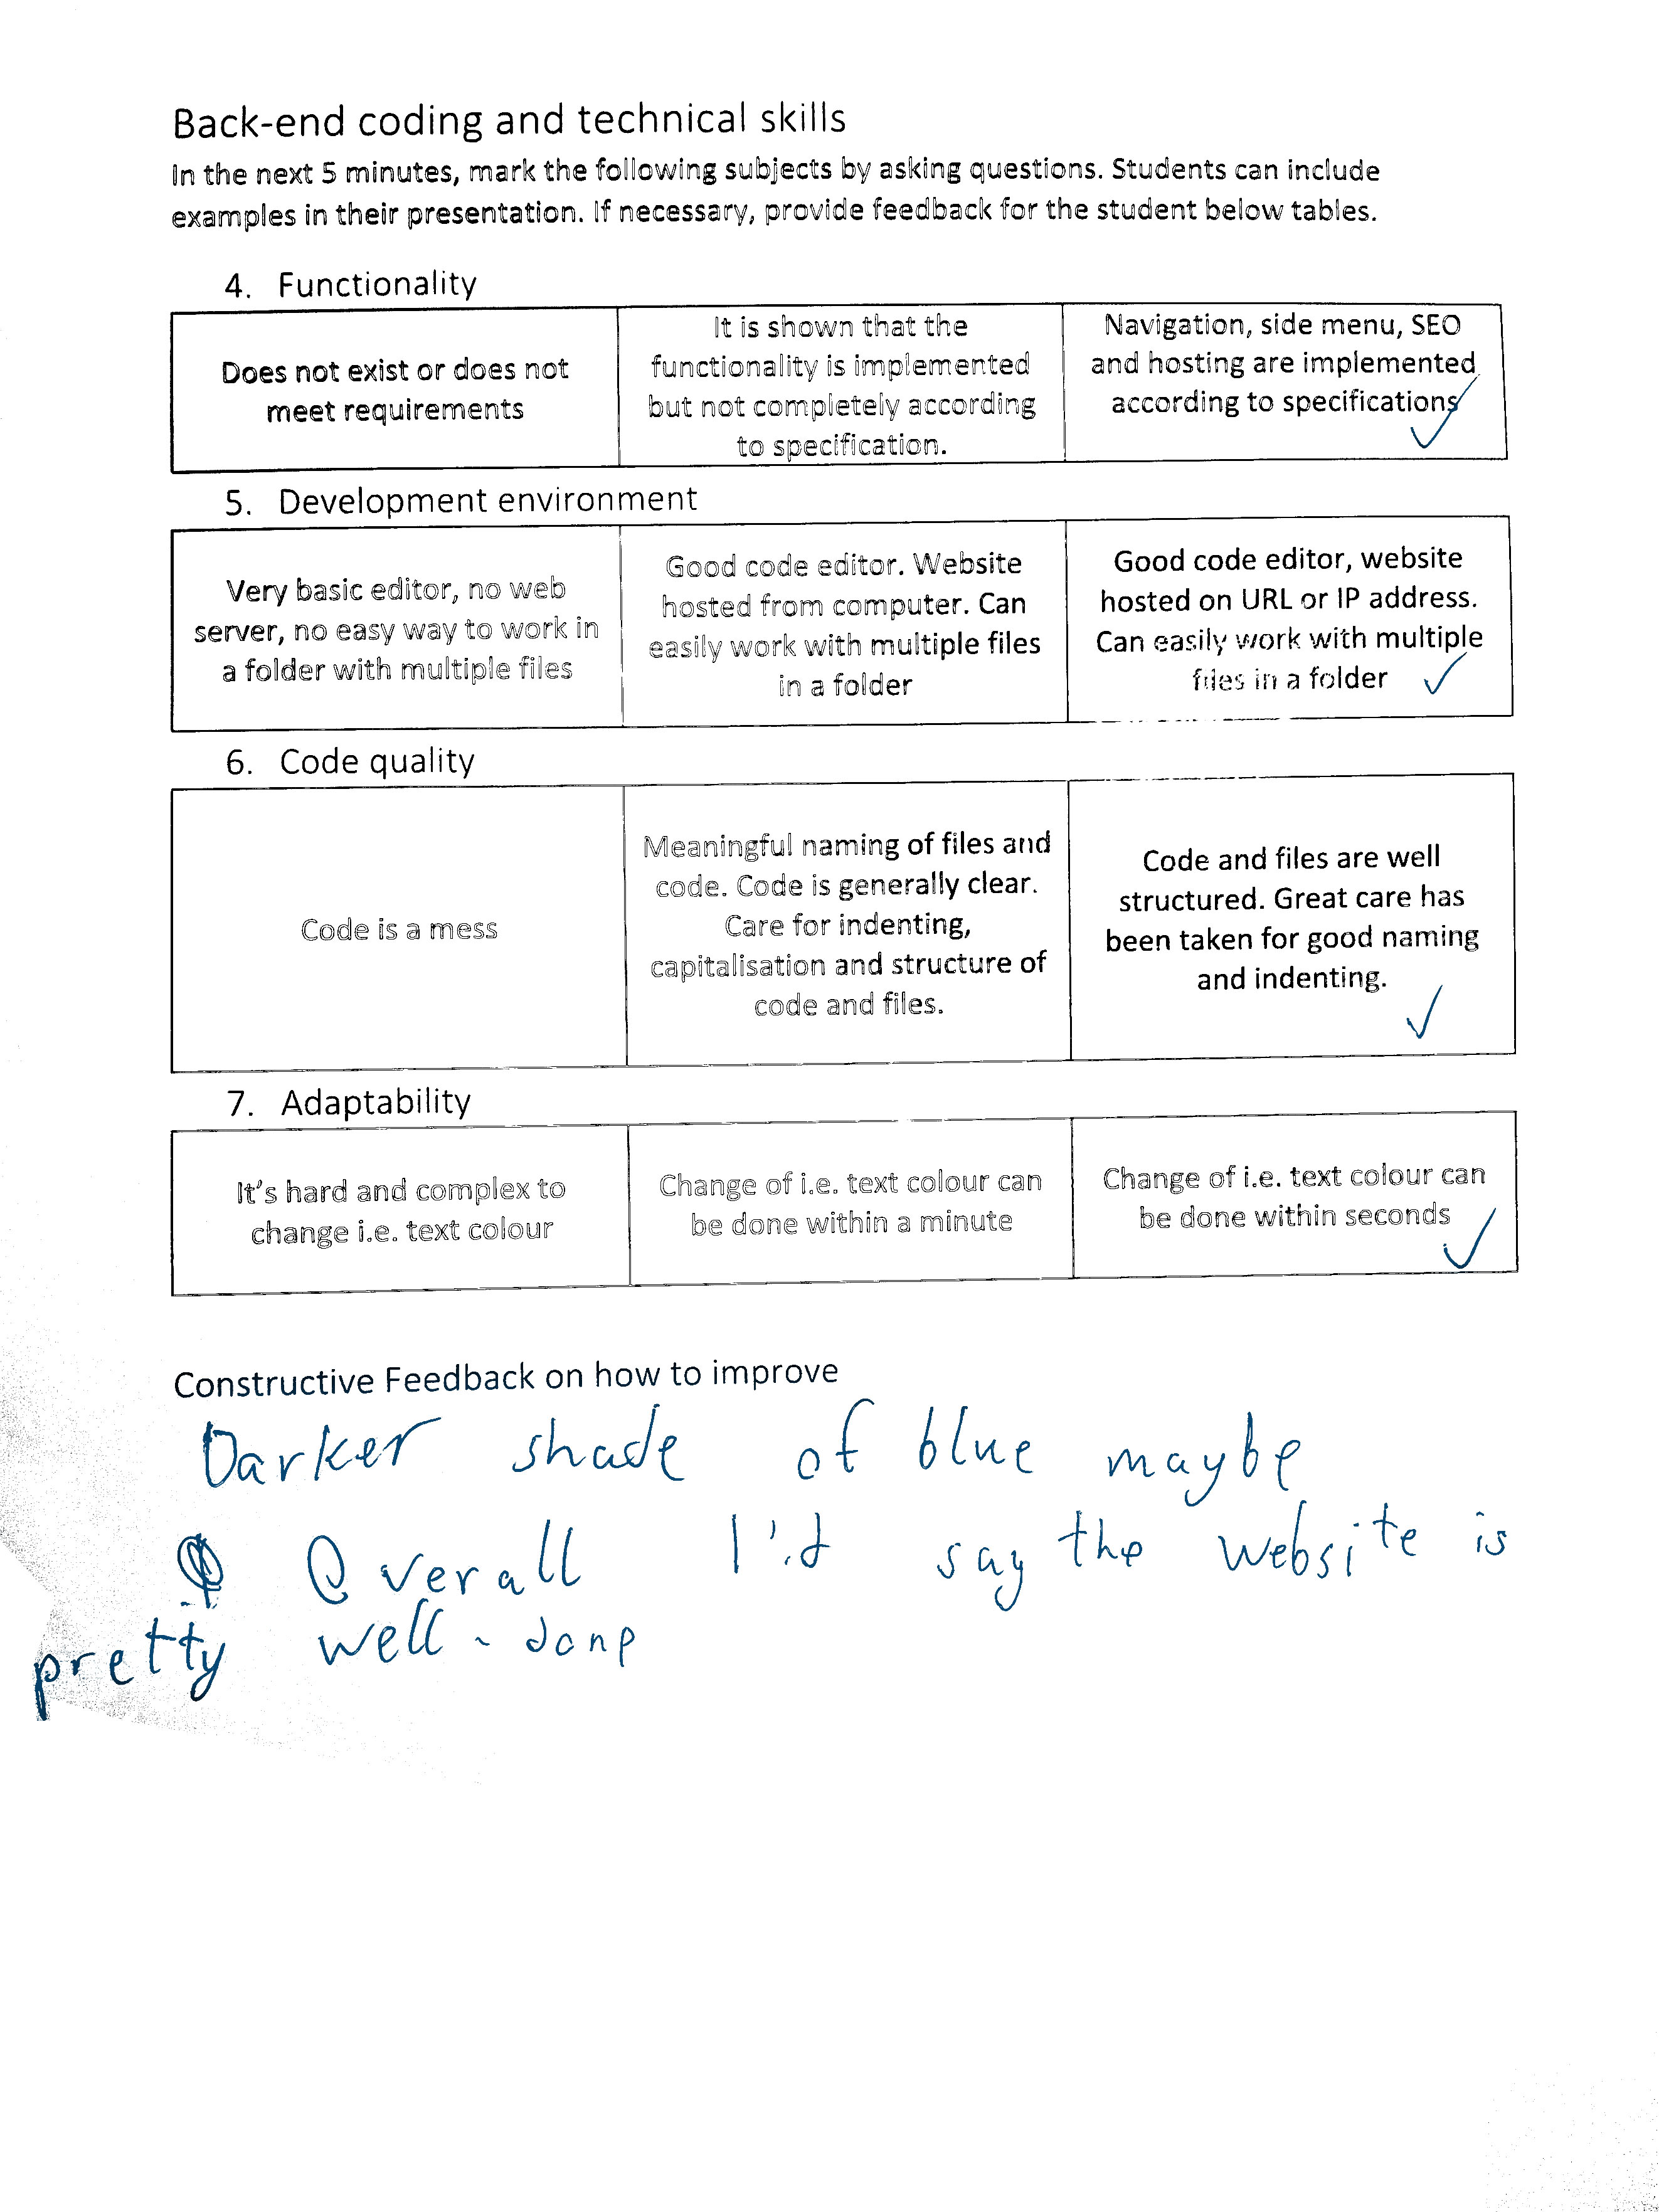 Back-end coding and technical skills
In the next 5 minutes, mark the following subjects by asking questions. Students can include
examples in their presentation. If necessary, provide feedback for the student below tables.
4. Functionality
Does not exist or does not
meet requirements
It is shown that the
functionality is implemented
but not completely according
to specification.
Navigation, side menu, SEO
and hosting are implemented
according to specifications
5. Development environment
Very basic editor, no web
server, no easy way to work in
a folder with multiple files
Good code editor. Website
hosted from computer. Can
easily work with multiple files
in a folder
Good code editor, website
hosted on URL or IP address.
Can easily work with multiple
files in a folder
6. Code quality
Code is a mess
Meaningful naming of files and
code. Code is generally clear.
Care for indenting,
capitalisation and structure of
code and files.
Code and files are well
structured. Great care has
been taken for good naming
and indenting.
7. Adaptability
It's hard and complex to
change i.e. text colour
Change of i.e. text colour can
be done within a minute
Change of i.e. text colour can
be done within seconds
Constructive Feedback on how to improve
Darker shade of blue maybe
Overall I'd say the website is
pretty well-done